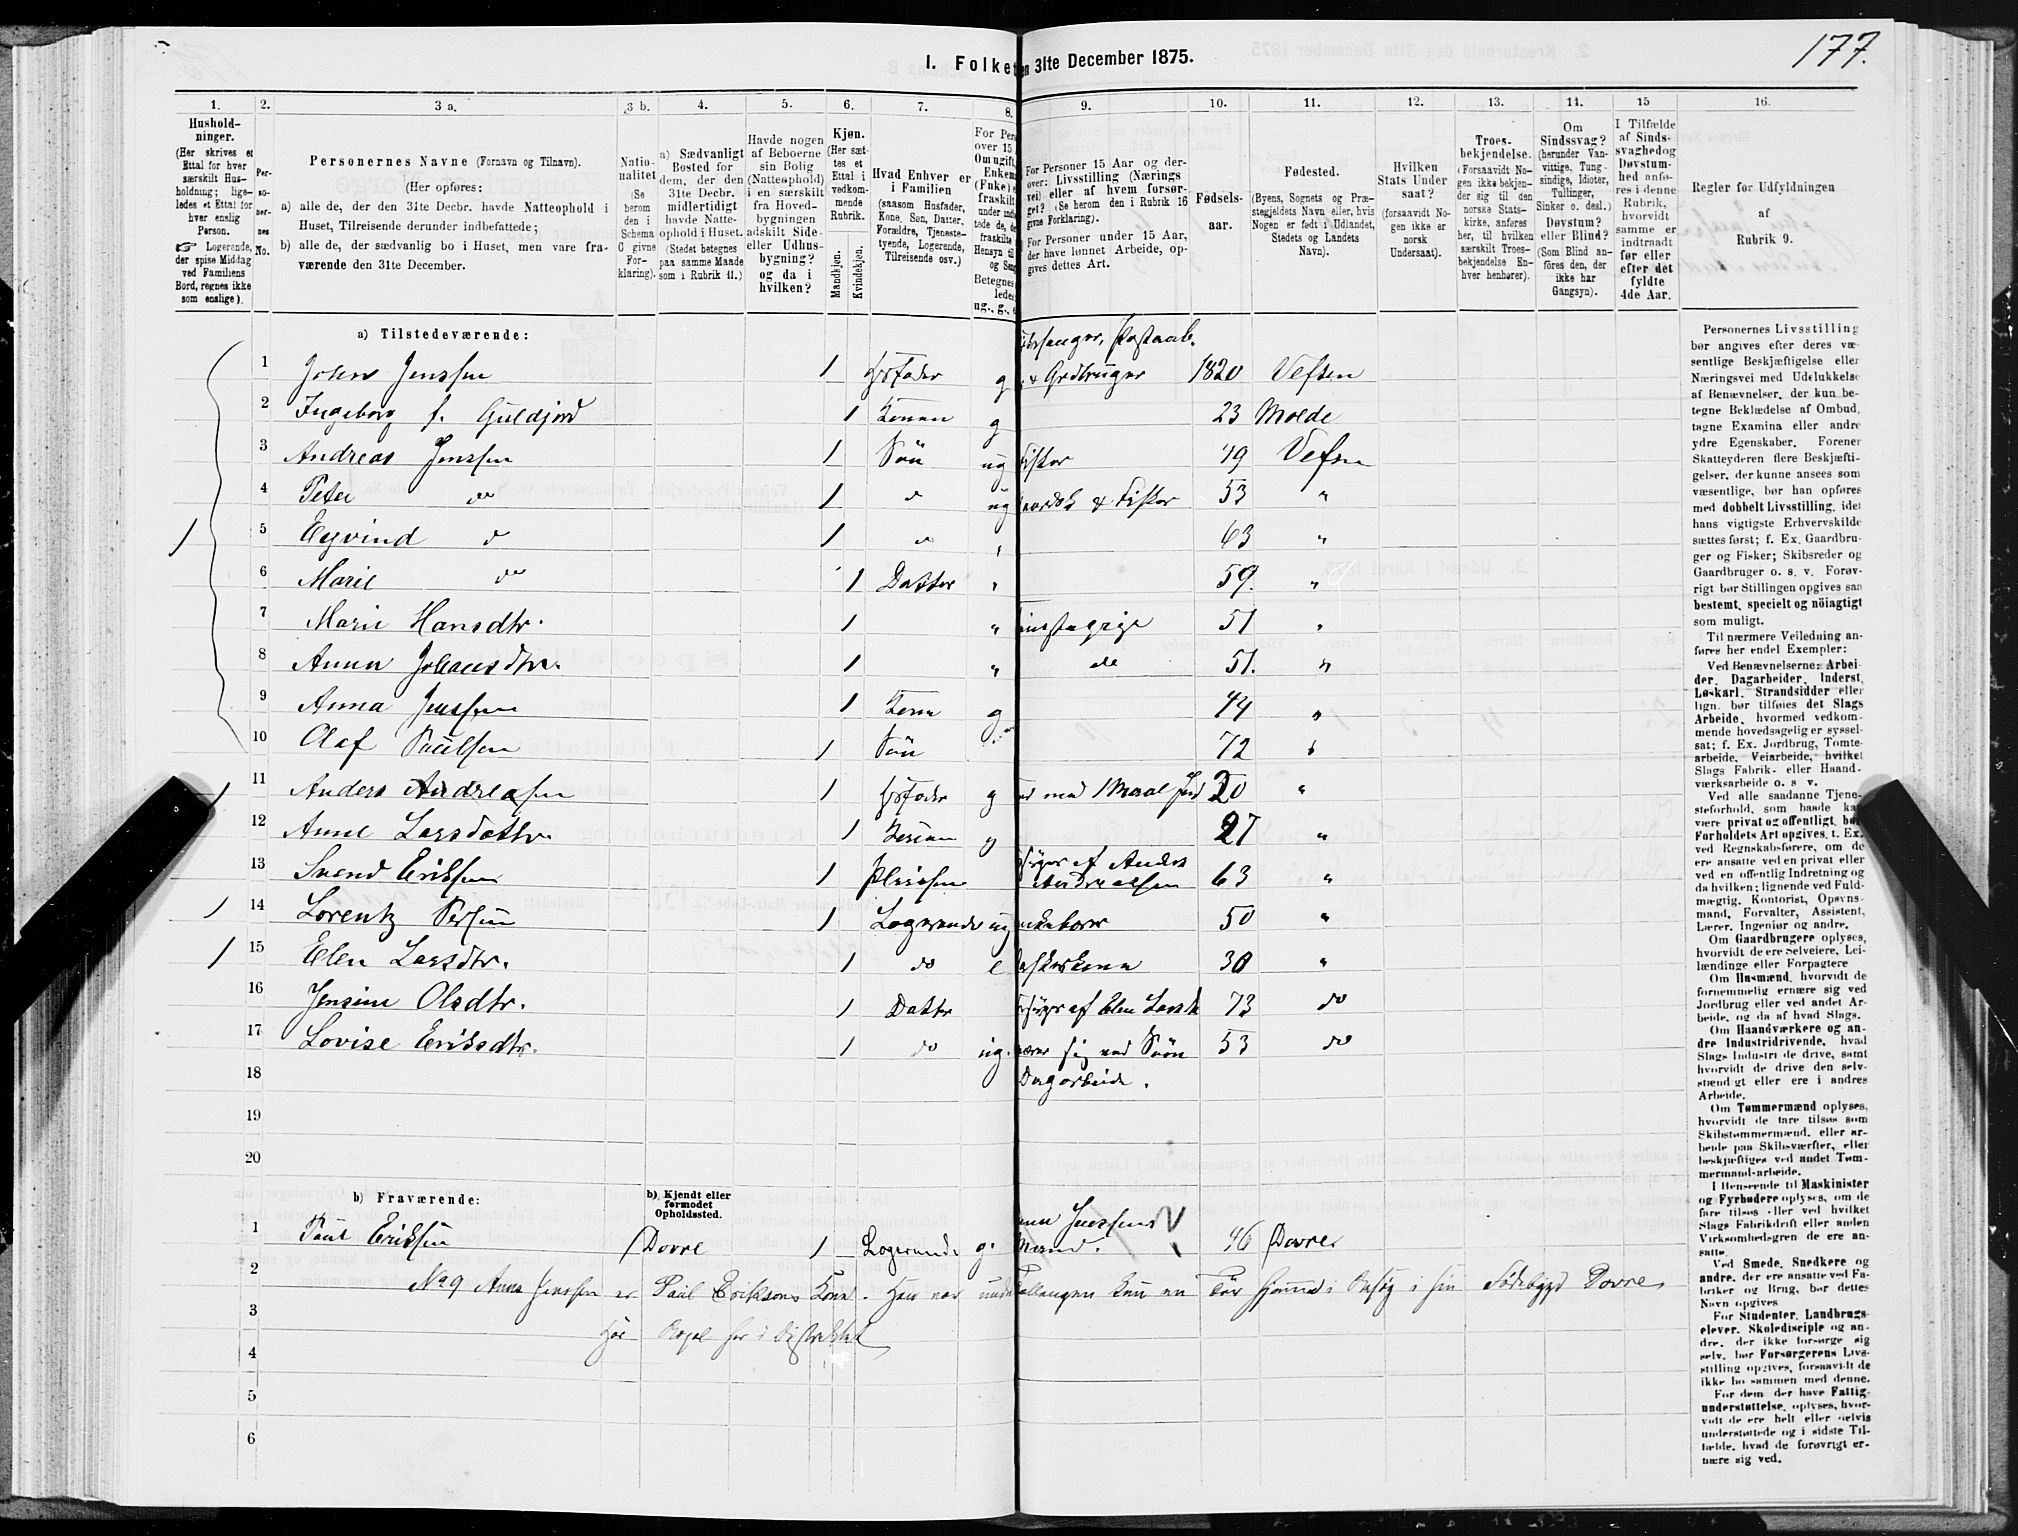 177.
1. Folket en 31te December 1875.
1. 2. 3 a. 3 b. 4. 5. 6. 7. 8. 9. 10. 11. 12. 13. 14. 15 16.
Husholdninger.
(Her skrives et
Ettal for hver
særskilt Husholdning; ligeledes
et Ettal for
hver enslig
Person.
☞ Logerende,
der spise Middag
ved Familiens
Bord, regnes ikke
som enslige).
Personernes No.
Personernes Navne (Fornavn og Tilnavn).
(Her opføres:
a) alle de, der den 31te Decbr. havde Natteophold i
Huset, Tilreisende derunder indbefattede;
b) alle de, der sædvanlig bo i Huset, men vare fraværende
den 31te December.
Nationalitet
(Se
herom
den i
Schema
C givne
Forklaring).
a) Sædvanligt
Bosted for
dem, der den
31te Decbr.
midlertidigt
havde Natteophold
i Huset.
(Stedet betegnes
paa samme Maade
som i Rubrik 11.)
Havde nogen
af Beboerne
sin Bolig
(Natteophold)
i en særskilt
fra Hovedbygningen
adskilt Side-
eller Udhusbygning?
og da i
hvilken?
Kjøn.
(Her sættes
et
Ettal i
vedkommende
Rubrik.
Mandkjøn.
Kvindekjøn.
Hvad Enhver er
i Familien
(saasom Husfader,
Kone, Søn, Datter,
Forældre, Tjenestetyende,
Logerende,
Tilreisende osv.)
For Personer 15 Aar og derover:
Livsstilling (Næringsvei)
eller af hvem forsørget?
(Se herom den i Rubrik 16
givne Forklaring).
For Personer under 15 Aar,
der have lønnet Arbeide, opgives
dettes Art.
Fødselsaar.
Fødested.
(Byens, Sognets og Præstegjeldets
Navn eller, hvis
Nogen er født i Udlandet,
Stedets og Landets
Navn).
Hvilken
Stats Undersaat?
(forsaavidt Nogen
ikke er
norsk
Undersaat).
Troesbekjendelse.
(Forsaavidt Nogen
ikke bekjender
sig til den
norske Statskirke,
anføres
her, til hvilken
særskilt Troesbekjendelse
Enhver
henhører).
Om
Sindssvag?
(herunder Vanvittige,
Tungsindige,
Idioter,
Tullinger,
Sinker o. desl.)
Døvstum?
eller Blind?
(Som Blind anføres
den, der
ikke har
Gangsyn).
I Tilfælde
af Sindssvaghed
og
Døvstumhed
anføres
i denne
Rubrik,
hvorvidt
samme er
indtraadt
før eller
efter det
fyldte
4de Aar.
Regler for Udfyldningen
af
Rubrik 9.
a) Tilstedeværende:
1 John Jenssen 1 Hsfader g & Grdbruger 1820 Vefsen
2 Ingeborg f. Guldfjord 1 Konen g 23 Molde
3 Andreas Jenssen 1 Søn ug Fisker 49 Vefsn
4 Peter do 1 d ug & Fisker 53 "
1 5 Eyvind d 1 " 63 "
6 Marie do 1 Datter 59. "
7 Marie Hansdtr. 1 " 51 "
8 Anna Johansdtr. 1 " do 51. "
9 Anna Jenssen 1 Kone g 44 "
10 Olaf Paulsen 1 Søn 72 "
1 11 Anders Andreasen 1 Hsfader g 20 "
12 Anne Larsdatter 1 Konen g 27 "
13 Svend Eriksen 1 Pleiesøn af Anders Andreassen 63 "
1 14 Lorentz 1 Logerende ug 50 "
1 15 Elen Larsdtr. 1 do e 30 "
16 Jensine Olsdtr. 1 Datter af Elen Larsdtr 73 do
17 Lovise Eriksdtr. 1 do ug. sig ved 53 do
18 Dagarbeide.
19
20
b) Fraværende:
b) Kjendt eller
formodet
Opholdssted.
1 Paul Eriksen Dovre 1 Logerende g. Jenssens Mand. 46 Dovre
2 No 9 Anna Jenssen er Paul Eriksens Kone. Han var under Tællingen kun en Tur hjemme i Besøg i sin Fødebygd Dovre
3
4
5
6
Personernes Livsstilling
bør angives efter deres væsentlige
Beskjæftigelse eller
Næringsvei med Udelukkelse
af Benævnelser, der kun betegne
Beklædelse af Ombud,
tagne Examina eller andre
ydre Egenskaber. Forener
Skatteyderen flere Beskjæftigelser,
der kunne ansees som
væsentlige, bør han opføres
med dobbelt Livsstilling, idet
hans vigtigste Erhvervskilde
sættes først; f. Ex. Gaardbruger
og Fisker; Skibsreder og
Gaardbruger o. s. v. Forøvrigt
bør Stillingen opgives saa
bestemt, specielt og nöiagtigt
som muligt.
Til nærmere Veiledning anføres
her endel Exempler:
Ved Benævnelserne: Arbeider,
Dagarbeider, Inderst,
Løskarl, Strandsidder eller
lign. bør tilføies det Slags
Arbeide, hvormed vedkommende
hovedsagelig er sysselsat;
f. Ex. Jordbrug, Tomtearbeide,
Veiarbeide, hvilket
Slags Fabrik- eller Haandværksarbeide
o. s. v.
Ved alle saadanne Tjenesteforhold,
som baade kan
være privat og offentligt, bør
Forholdets Art opgives, t. Ex.
ved Regnskabsførere, om de
ere ansatte ved en privat eller
ved en offentlig Indretning og
da hvilken; lignende ved Fuldmægtig,
Kontorist, Opsynsmand,
Forvalter, Assistent,
Lærer, Ingeniør og andre.
Om Gaardbrugere oplyses,
hvorvidt de ere selveiere, Leilændinge
eller Forpagtere
Om Husmænd, hvorvidt de
fornemmelig ernære sig ved
Jordbrug eller ved andet Arbeide,
og da af hvad Slags.
Om Haandværkere og andre
Industridrivende, hvad
Slags Industri de drive, samt
hvorvidt de drive den selvstændigt
eller ere i andres
Arbeide.
Om Tømmermænd oplyses,
hvorvidt de fare tilsøs som
Skibstømmermænd, eller arbeide
paa Skibsværfter, eller
beskjæftiges ved andet Tømmermand-arbeide.
I Henseende til Maskinister
og Fyrbødere oplyses, om de
fare tilsøs eller ved hvilket
Slags Fabrikdrift eller anden
Virksomhedsgren de ere ansatte.
Ved Smede, Snedkere og
andre, der ere ansatte ved Fabriker
og Brug, bør dettes
Navn opgives
For Studenter, Landbrugselever,
Skoledisciple og andre,
der ikke forsørge sig
selv, bør Forsørgerens Livsstilling
opgives, forsaavidt de
ikke bo sammen med denne.
For dem, der have Fattigunderstøttelse,
oplyses, hvorvidt
de ere helt eller delvis
understøttede og i sidste Tilfælde,
hvad de forøvrigt ernære
sig ved.